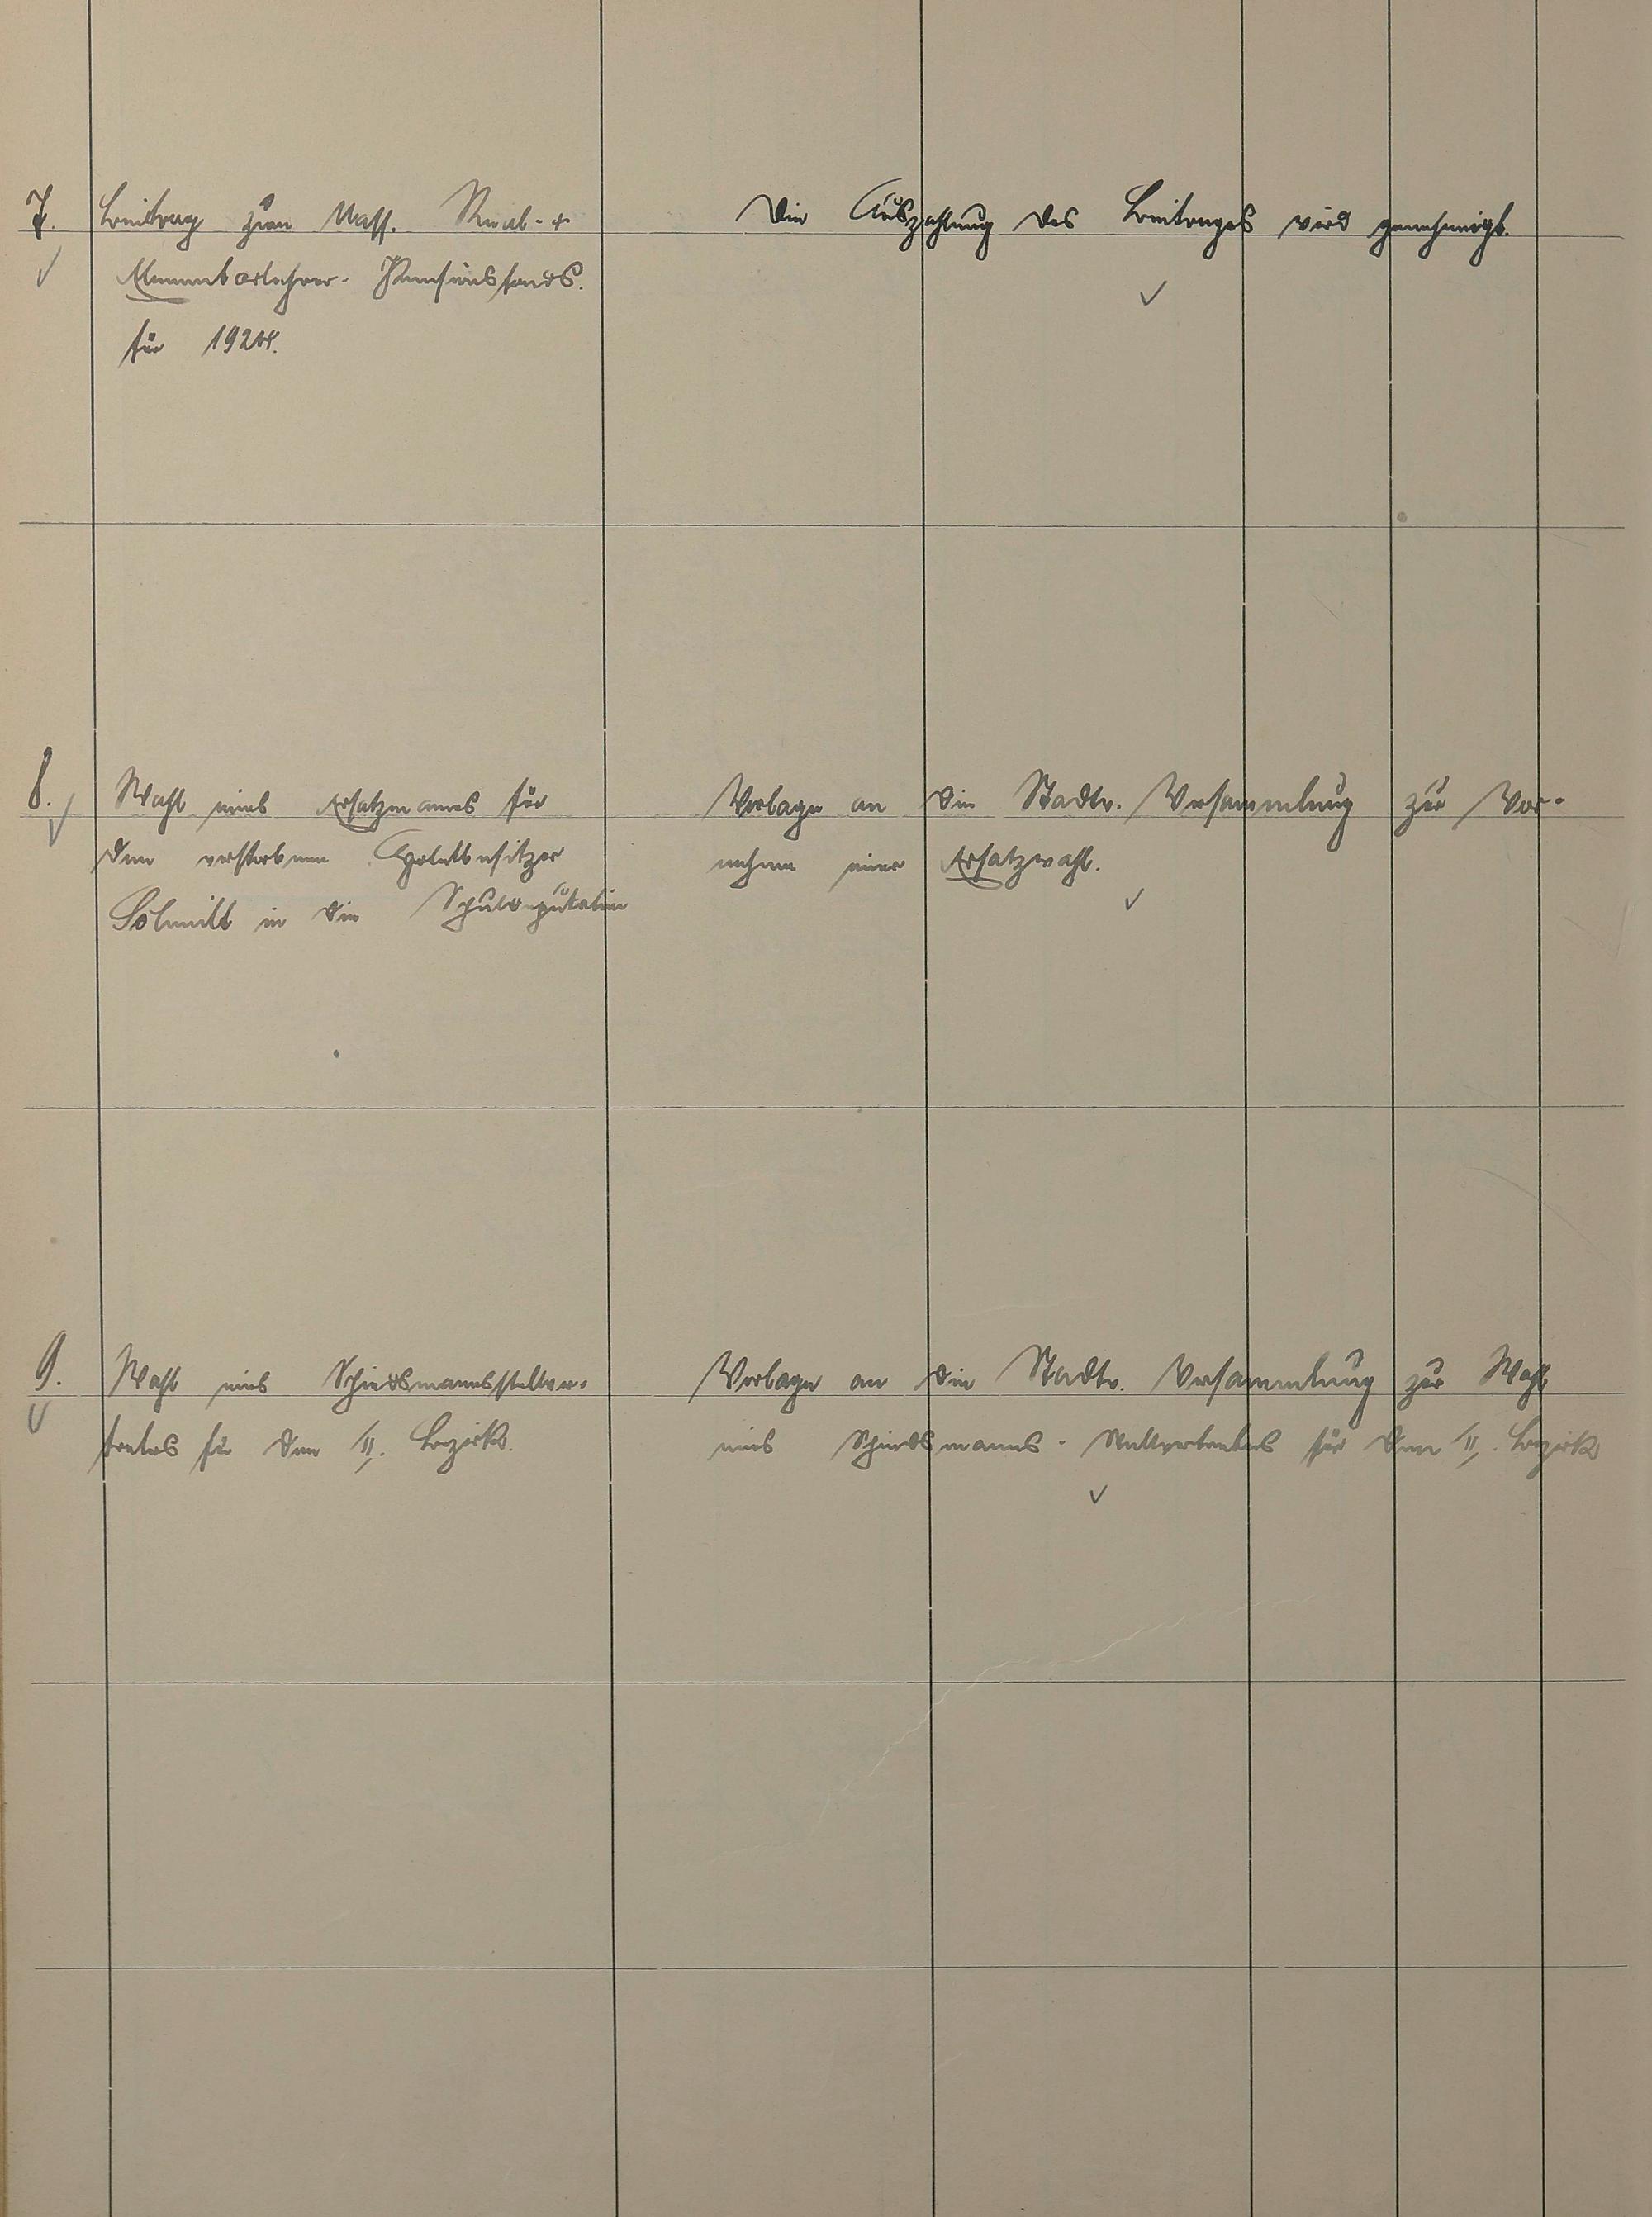 7. Beitrag zum Nass. Real- &
Elementarlehrer- Pensionsfonds.
für 1924.
Die Auszahlung des Beitrages wird genehmigt.
8. Wahl eines Ersatzmannes für
den verstorbenen Hotelbesitzer
in die Schuldeputation
Vorlage an die Stadtv. Versammlung zur Vor-
nahme einer Ersatzwahl.
9. Wahl eines Schiedsmannsstellver-
treters für den II. Bezirk.
Vorlage an die Stadtv. Versammlung zur Wahl
eines Schiedsmanns- Stellvertreters für den II. Bezirk